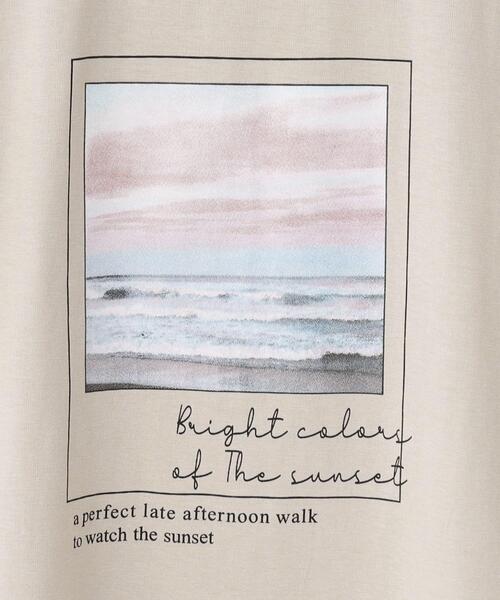 Bright colors
of The sunset
a perfect late afternoon walk
to watch the sunset